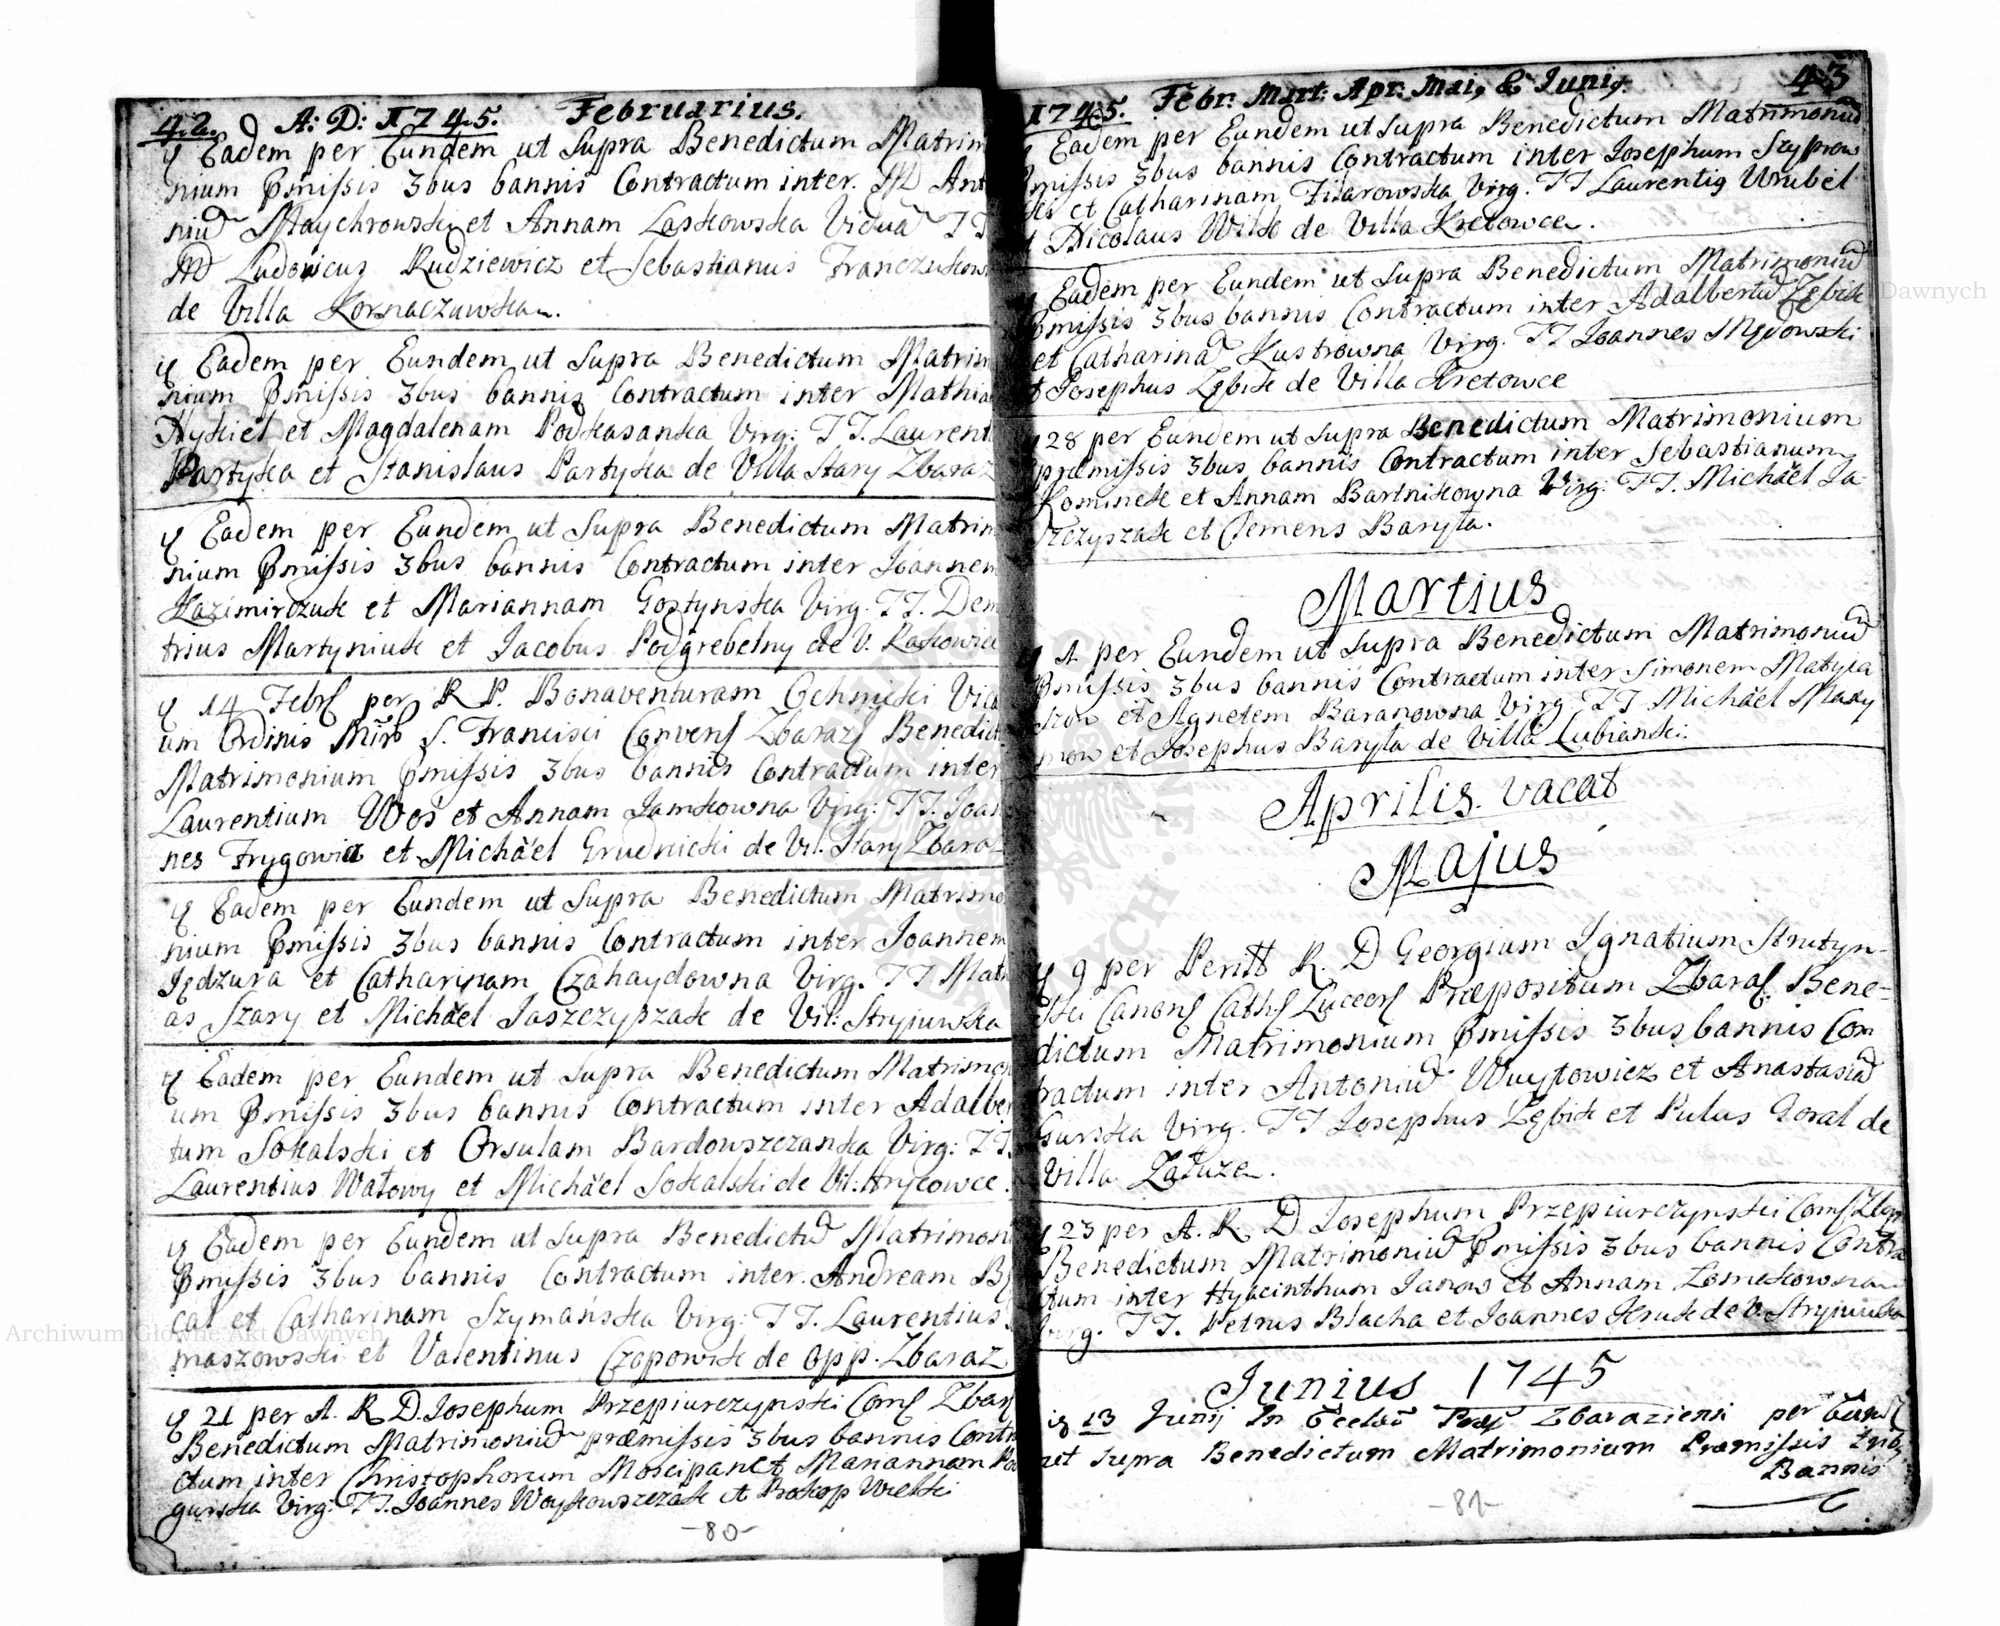 42. A: D: 1745. Februarius.
Eadem per Eundem ut Supra Benedictum Matrim
nium Pmissis 3bus bannis Contractum inter. MD Ant
niu Maychrowski et Annam Laskowska Vidua TT
MD Ludovicus Rudziewicz et Sebastianus Franczukow
de Villa Kornaczuwska.
Eadem per Eundem ut Supra Benedictum Matrim
nium Pmissis 3bus bannis Contractum inter Mathia
Hyskiel et Magdalenam Podkasanka Virg: TT. Laurent
Partyka et Stanislaus Partyka de Villa Stary Zbaraz
Eadem per Eundem ut Supra Benedictum Matrim
nium Pmissis 3bus bannis Contractum inter Joannem
Kazimirczuk et Mariannam Gostynska Virg. TT. Dem
trius Martyniuk et Jacobus Podgrebelny de V. Kackowice
14 Febr per R P. Bonaventuram Ochnicki Vica
um Ordinis Min S. Francisci Convens Zbaraz Benedict
Matrimonium Pmissis 3bus bannis Contractum inter
Laurentium Wos et Annam Jamkowna Virg: TT. Joan
nes Frygowicz et Michäel Grudnicki de Vil. Stary Zbaraz
Eadem per Eundem ut Supra Benedictum Matrimo
nium Pmissis 3bus bannis Contractum inter Joannem
Jędzura et Catharinam Czahaydowna Virg. TT Math
as Szary et Michäel Jaszczyszak de Vil: Stryiuwka
Eadem per Eundem ut Supra Benedictum Matrimon
um Pmissis 3bus bannis Contractum inter Adalber
tum Sokalski et Orsulam Bardowszczanka Virg: TT.
Laurentius Watowy et Michäel Sokalski de Vil: Hrycowce.
Eadem per Eundem ut Supra Benedictu Matrimoni
Pmissis 3bus bannis Contractum inter. Andream By
cal et Catharinam Szymańska Virg: TT. Laurentius
maszowski et Valentinus Czopowik de Opp. Zbaraz
21 per A. R D. Josephum Przepiurczynski Com Zbar
Benedictum Matrimoniu præmissis 3bus bannis Contra
ctum inter Christophorum Moscipan et Mariannam Pod
gurska Virg: TT. Joannes Woykowszczak et Prokop Wielki
-80-
1745. Febr: Mart: Apr: Mai, & Junij. 43
Eadem per Eundem ut Supra Benedictum Matrimoniu
Pmissis 3bus bannis Contractum inter Josephum Szyprow
ski et Catharinam Filarowska Virg. TT Laurentius Wrubel
Nicolaus Wilk de Villa Kretowce.
Eadem per Eundem ut Supra Benedictum Matrimoniu
Pmissis 3bus bannis Contractum inter Adalbertu Zębik
et Catharina Kustrowna Virg. TT Joannes Mędowski
et Josephus Zębik de Villa Kretowce
28 per Eundem ut Supra Benedictum Matrimonium
præmissis 3bus bannis Contractum inter Sebastianum
Kominek et Annam Bartnikowna Virg: TT. Michäel Ja
szczyszak et Clemens Baryła.
Martius
1 per Eundem ut Supra Benedictum Matrimoniu
Pmissis 3bus bannis Contractum inter Simonem Matyia
szow et Agnetem Baranowna Virg TT Michäel Maxy
mow et Josephus Baryła de Villa Lubianki.
Aprilis. vacat
Majus
9 per Peritt R. D Georgium Ignatium Strutyn-
ski Canon Cath Luceor Præpositum Zbaras. Bene-
dictum Matrimonium Pmissis 3bus bannis Con
tractum inter Antoniu Wuytowicz et Anastasia
Gurska Virg. TT Josephus Zębik et Pulus Goral de
Villa Załuze.
23 per A. R. D Josephum Przepiurczynski Com Zbar
Benedictum Matrimoniu Pmissis 3bus bannis Contra
ctum inter Hyacinthum Janow et Annam Zomekowna
Virg. TT. Petrus Blacha et Joannes Kruk de V. Stryiuwka
Junius 1745
13 Junij In Eccl Par Zbaraziensi per Eund
ut supra Benedictum Matrimonium Præmissis Trib
Bannis
-81-
Archiwum Główne Akt Dawnych